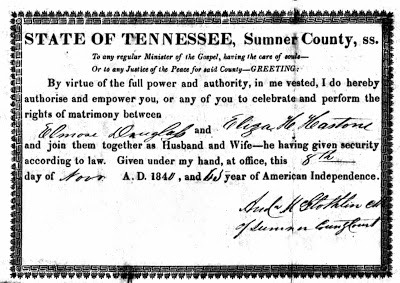 STATE OF TENNESSEE, Sumner County, ss.
To any regular Minister of the Gospel, having the care of souls—
Or to any Justice of the Peace for said County—GREETING:
By virtue of the full power and authority, in me vested, I do hereby
authorise and empower you, or any of you to celebrate and perform the
rights of matrimony between
Elmore Douglass and Eliza H.
and join them together as Husband and Wife—he having given security
according to law. Given under my hand, at office, this 8th
day of Novr A. D. 1840, and 65 year of American Independence.
of Sumner County Court